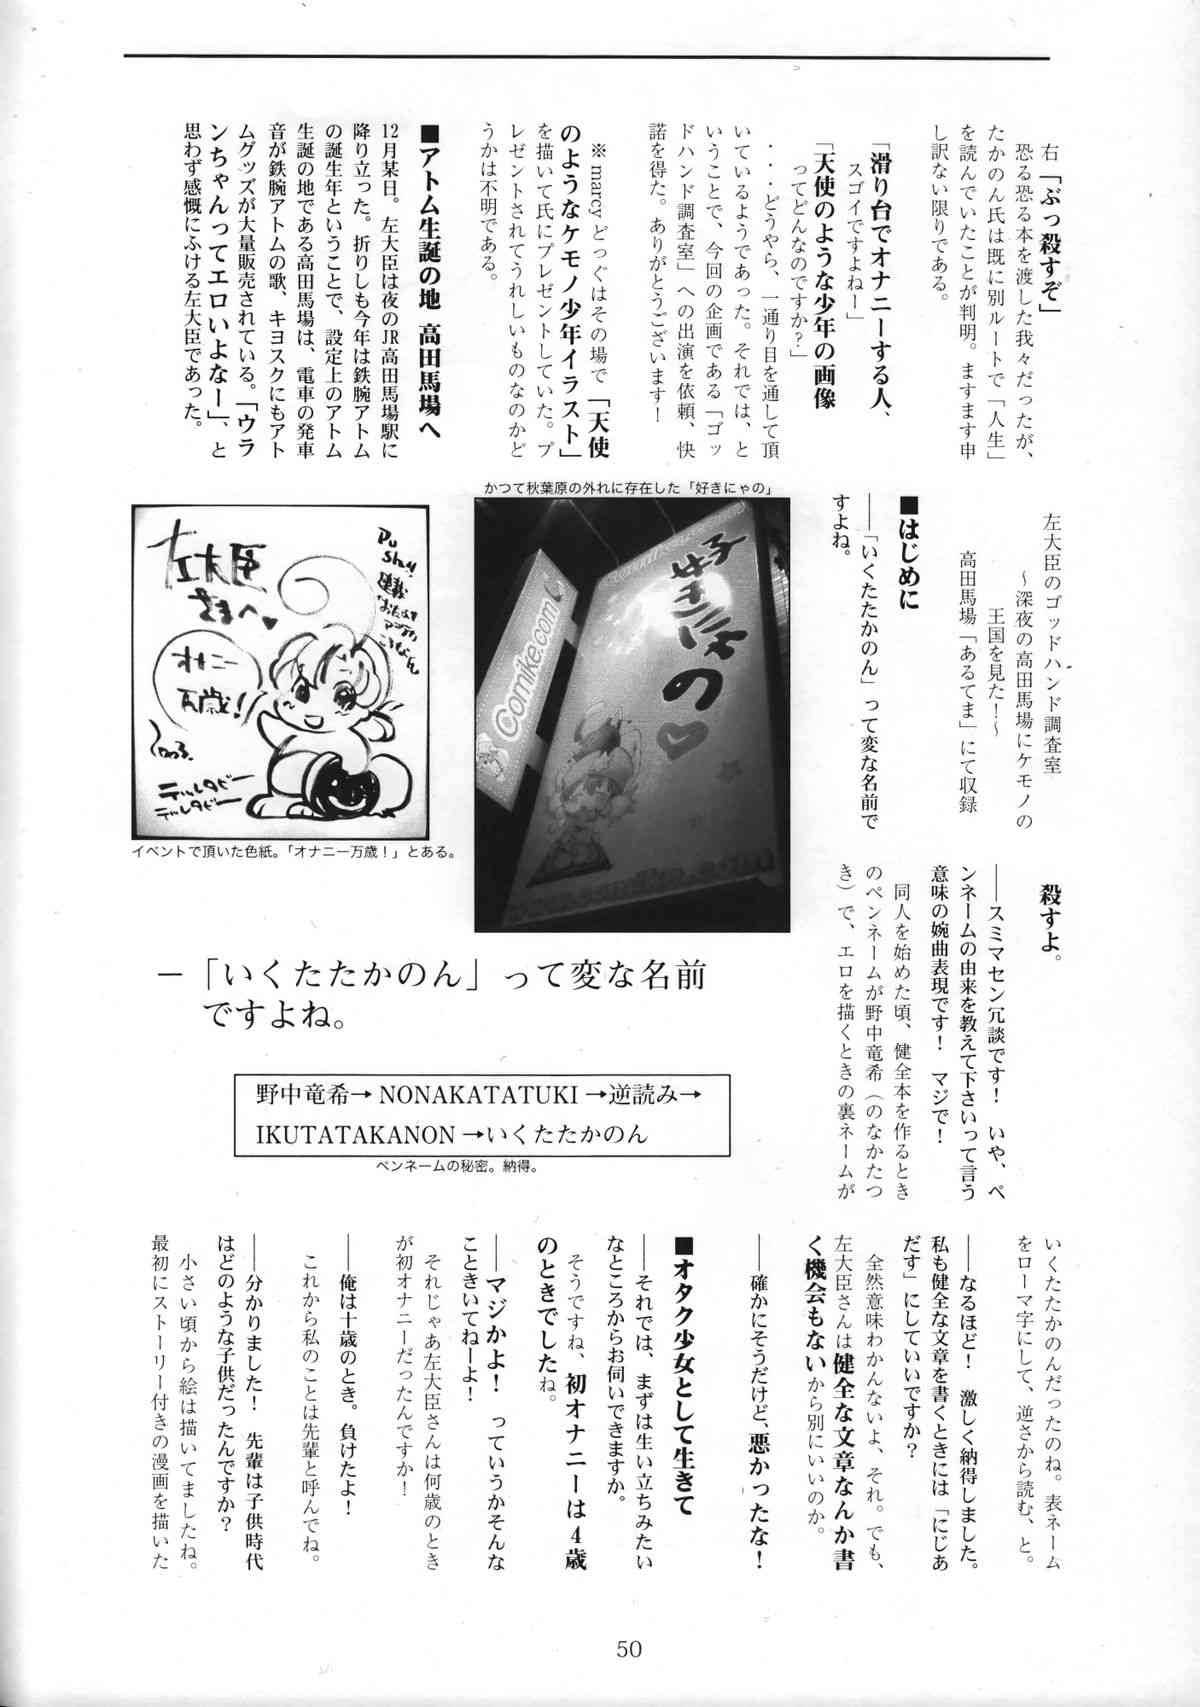 右「ぶっ殺すぞ」
恐る恐る本を渡した我々だったが、
たかのん氏は既に別ルートで「人生」
を読んでいたことが判明。ますます申
し訳ない限りである。
「滑り台でオナニーする人、
スゴイですよねー」
「天使のような少年の画像
ってどんなのですか?」
・・・どうやら、一通り目を通して頂
いているようであった。それでは、と
いうことで、今回の企画である「ゴッ
ドハンド調査室」への出演を依頼、快
諾を得た。ありがとうございます！
※marcyどっぐはその場で「天使
のようなケモノ少年イラスト」
を描いて氏にプレゼントしていた。プ
レゼントされてうれしいものなのかど
うかは不明である。
■アトム生誕の地 高田馬場へ
12月某日。左大臣は夜のJR高田馬場駅に
降り立った。折りしも今年は鉄腕アトム
の誕生年ということで、設定上のアトム
生誕の地である高田馬場は、電車の発車
音が鉄腕アトムの歌、キヨスクにもアト
ムグッズが大量販売されている。「ウラ
ンちゃんってエロいよなー」、と
思わず感慨にふける左大臣であった。
左大臣のゴッドハンド調査室
～深夜の高田馬場にケモノの
王国を見た！～
高田馬場「あるてま」にて収録
■はじめに
――「いくたたかのん」って変な名前で
すよね。
かつて秋葉原の外れに存在した「好きにゃの」
Comike.com
左大臣
さまへ♥
オナニー
万歳！
イベントで頂いた色紙。「オナニー万歳！」とある。
殺すよ。
――スミマセン冗談です！　いや、ペ
ンネームの由来を教えて下さいって言う
意味の婉曲表現です！　マジで！
同人を始めた頃、健全本を作るとき
のペンネームが野中竜希（のなかたつ
き）で、エロを描くときの裏ネームが
－「いくたたかのん」って変な名前
ですよね。
野中竜希→NONAKATATUKI→逆読み→
IKUTATAKANON→いくたたかのん
ペンネームの秘密。納得。
いくたたかのんだったのね。表ネーム
をローマ字にして、逆さから読む、と。
――なるほど！　激しく納得しました。
私も健全な文章を書くときには「にじあ
だす」にしていいですか？
全然意味わかんないよ、それ。でも、
左大臣さんは健全な文章なんか書
く機会もないから別にいいのか。
――確かにそうだけど、悪かったな！
■オタク少女として生きて
――それでは、まずは生い立ちみたい
なところからお伺いできますか。
そうですね、初オナニーは4歳
のときでしたね。
――マジかよ！　っていうかそんな
こときいてねーよ！
それじゃあ左大臣さんは何歳のとき
が初オナニーだったんですか！
――俺は十歳のとき。負けたよ！
これから私のことは先輩と呼んでね。
――分かりました！　先輩は子供時代
はどのような子供だったんですか？
小さい頃から絵は描いてましたね。
最初にストーリー付きの漫画を描いた
50